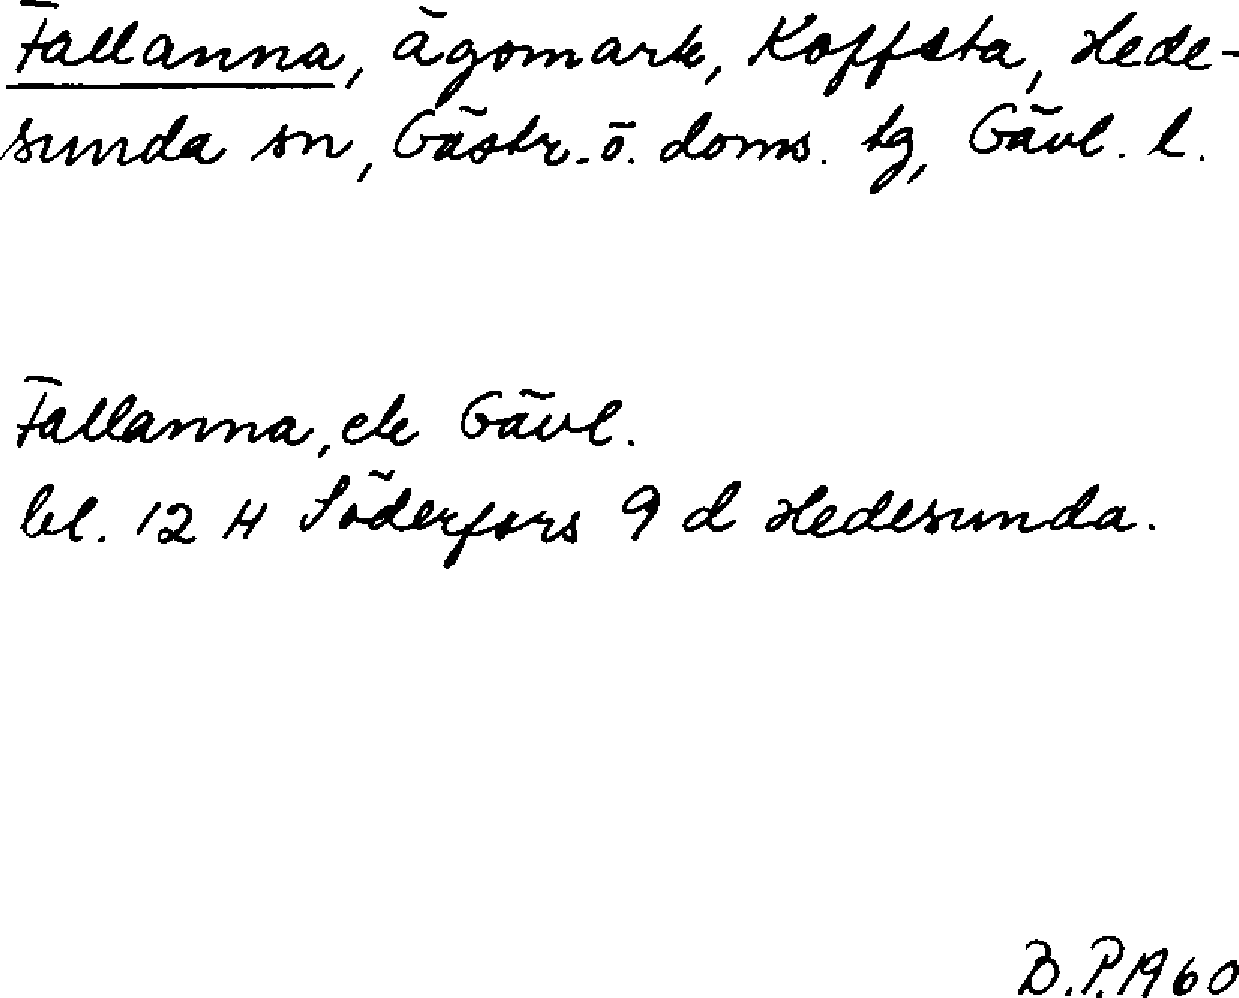 Fallanna, ägomark, Koffsta, Hede-
sunda sn, Gästr. ö. doms. tg, Gävl. l.
Fallanna, ek Gävl.
bl. 12 H Söderfors 9 d Hedesunda.
B.P. 1960